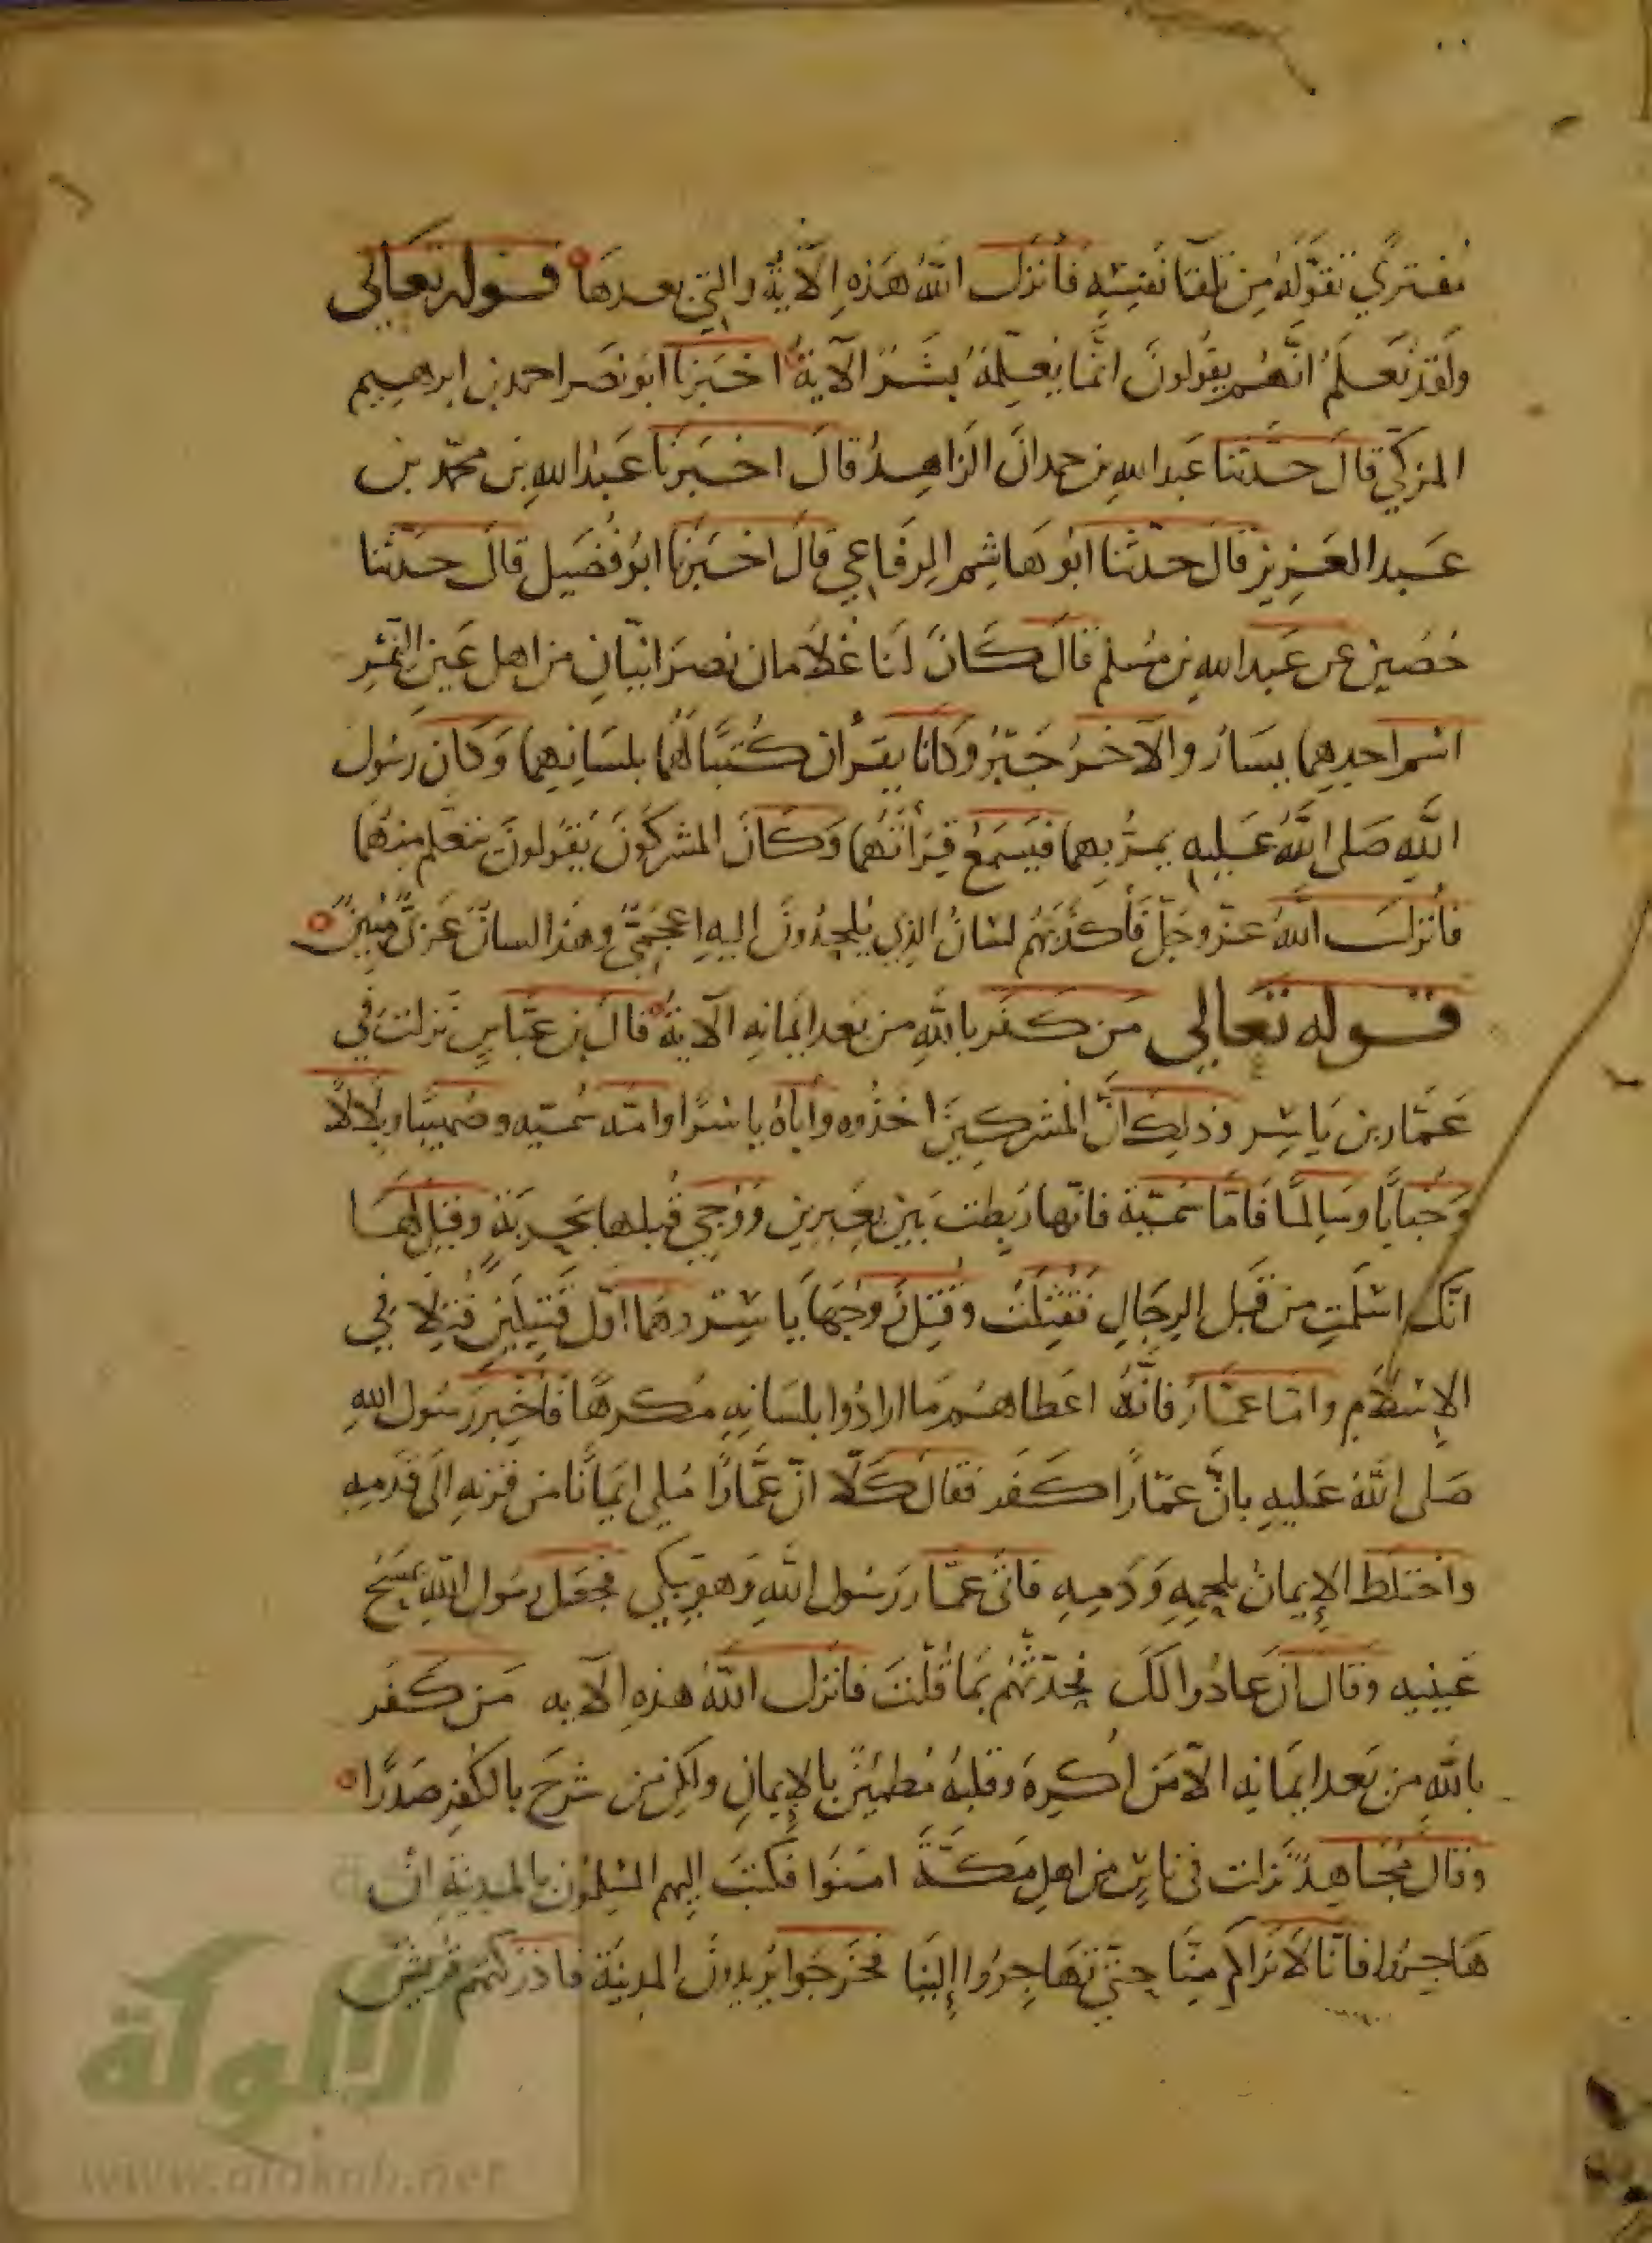 مفتري تقوّله من تلقا نفسه فأنزل الله هذه الآية والتي بعدها قوله تعالى
ولقد نعلم انهم يقولون انما يعلمه بشر الآية اخبرنا ابو نصر احمد بن ابرهيم
المزكي قال حدثنا عبد الله بن حمدان الزاهد قال اخبرنا عبد الله بن محمد بن
عبد العزيز قال حدثنا ابو هاشم الرفاعي قال اخبرنا ابو فضيل قال حدثنا
حصين عن عبد الله بن مسلم قال كان لنا غلامان نصرانيان من اهل عين التمر
اسم احدهما يسار والآخر جبر وكانا يقرآن كتبا لهما بلسانهما وكان رسول
الله صلى الله عليه يمر بهما فيسمع قرأتهما وكان المشركون يقولون يتعلم منهما
فأنزل الله عز وجل فأكذبهم لسان الذي يلحدون اليه اعجمي وهذا لسان عربي مبين
قوله تعالى من كفر بالله من بعد ايمانه الآية قال بن عباس نزلت في
عمار بن ياسر وذلك ان المشركين اخذوه وأباه ياسرا وامه سميه وصهيبا وبلالا
وخبابا وسالما فاما سمية فانها ربطت بين بعيرين ووجي قبلها بحربة وقيل لها
انك اسلمت من قبل الرجال فقتلت وقتل زوجها ياسر وهما اول قتيلين قتلا في
الإسلام واما عمار فانه اعطاهم ما ارادوا بلسانه مكرها فأخبر رسول الله
صلى الله عليه بان عمارا كفر فقال كلا ان عمارا ملي ايمانا من قرنه الى قدميه
واختلط الإيمان بلحمه ودمه فاتى عمار رسول الله وهو يبكي فجعل رسول الله يمسح
عينيه وقال ان عادوا لك فحدثهم بما قلت فانزل الله هذه الآيه من كفر
بالله من بعد ايمانه الا من اكره وقلبه مطمئن بالإيمان ولكن من شرح بالكفر صدرا
وقال مجاهد نزلت في ناس من اهل مكة امنوا فكتب إليهم المسلمون بالمدينة ان
هاجروا فانا لا نراكم منا حتى تهاجروا إلينا فخرجوا يريدون المدينة فادركتهم قريش
الألوكة
www.alukah.net